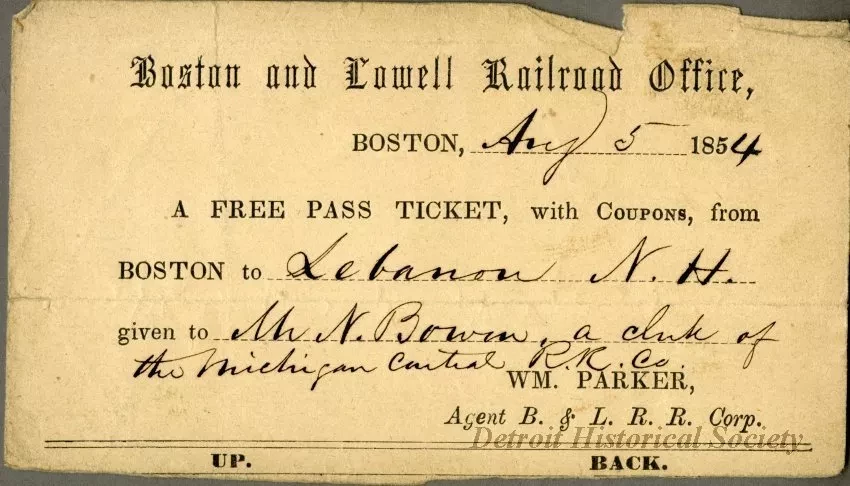 Boston and Lowell Railroad Office,
BOSTON, Aug 5 1854
A FREE PASS TICKET, with COUPONS, from
BOSTON to Lebanon N. H.
given to Mr N. Bowen, a clerk of
the Michigan Central R.R. Co.
WM. PARKER,
Agent B. & L. R. R. Corp.
Detroit Historical Society
UP. BACK.